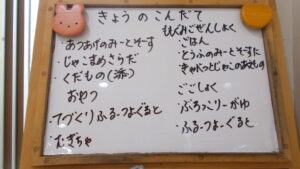 きょうのこんだて
・あつあげのみーとそーす
・じゃこまめさらだ
・くだもの(添)
おやつ
・てづくりふるーつよーぐると
・むぎちゃ
もぐみごぜんしょく
・ごはん
・とうふのみーとそーすに
・きゃべつとじゃこのあえもの
ごごしょく
・ぶろっこりーがゆ
・ふるーつよーぐると